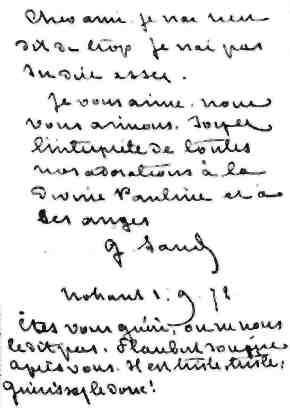 Cher ami je n'ai rien
dit de trop je n'ai pas
su dire assez.
Je vous aime, nous
vous aimons. Soyez
l'interprète de toutes
nos adorations à la
Divine Pauline et à
ses anges
G Sand
Nohant 1. 9. 72
êtes vous guéri, on ne nous
le dit pas. Flaubert
après vous. Il est triste, triste,
guérissez le donc!